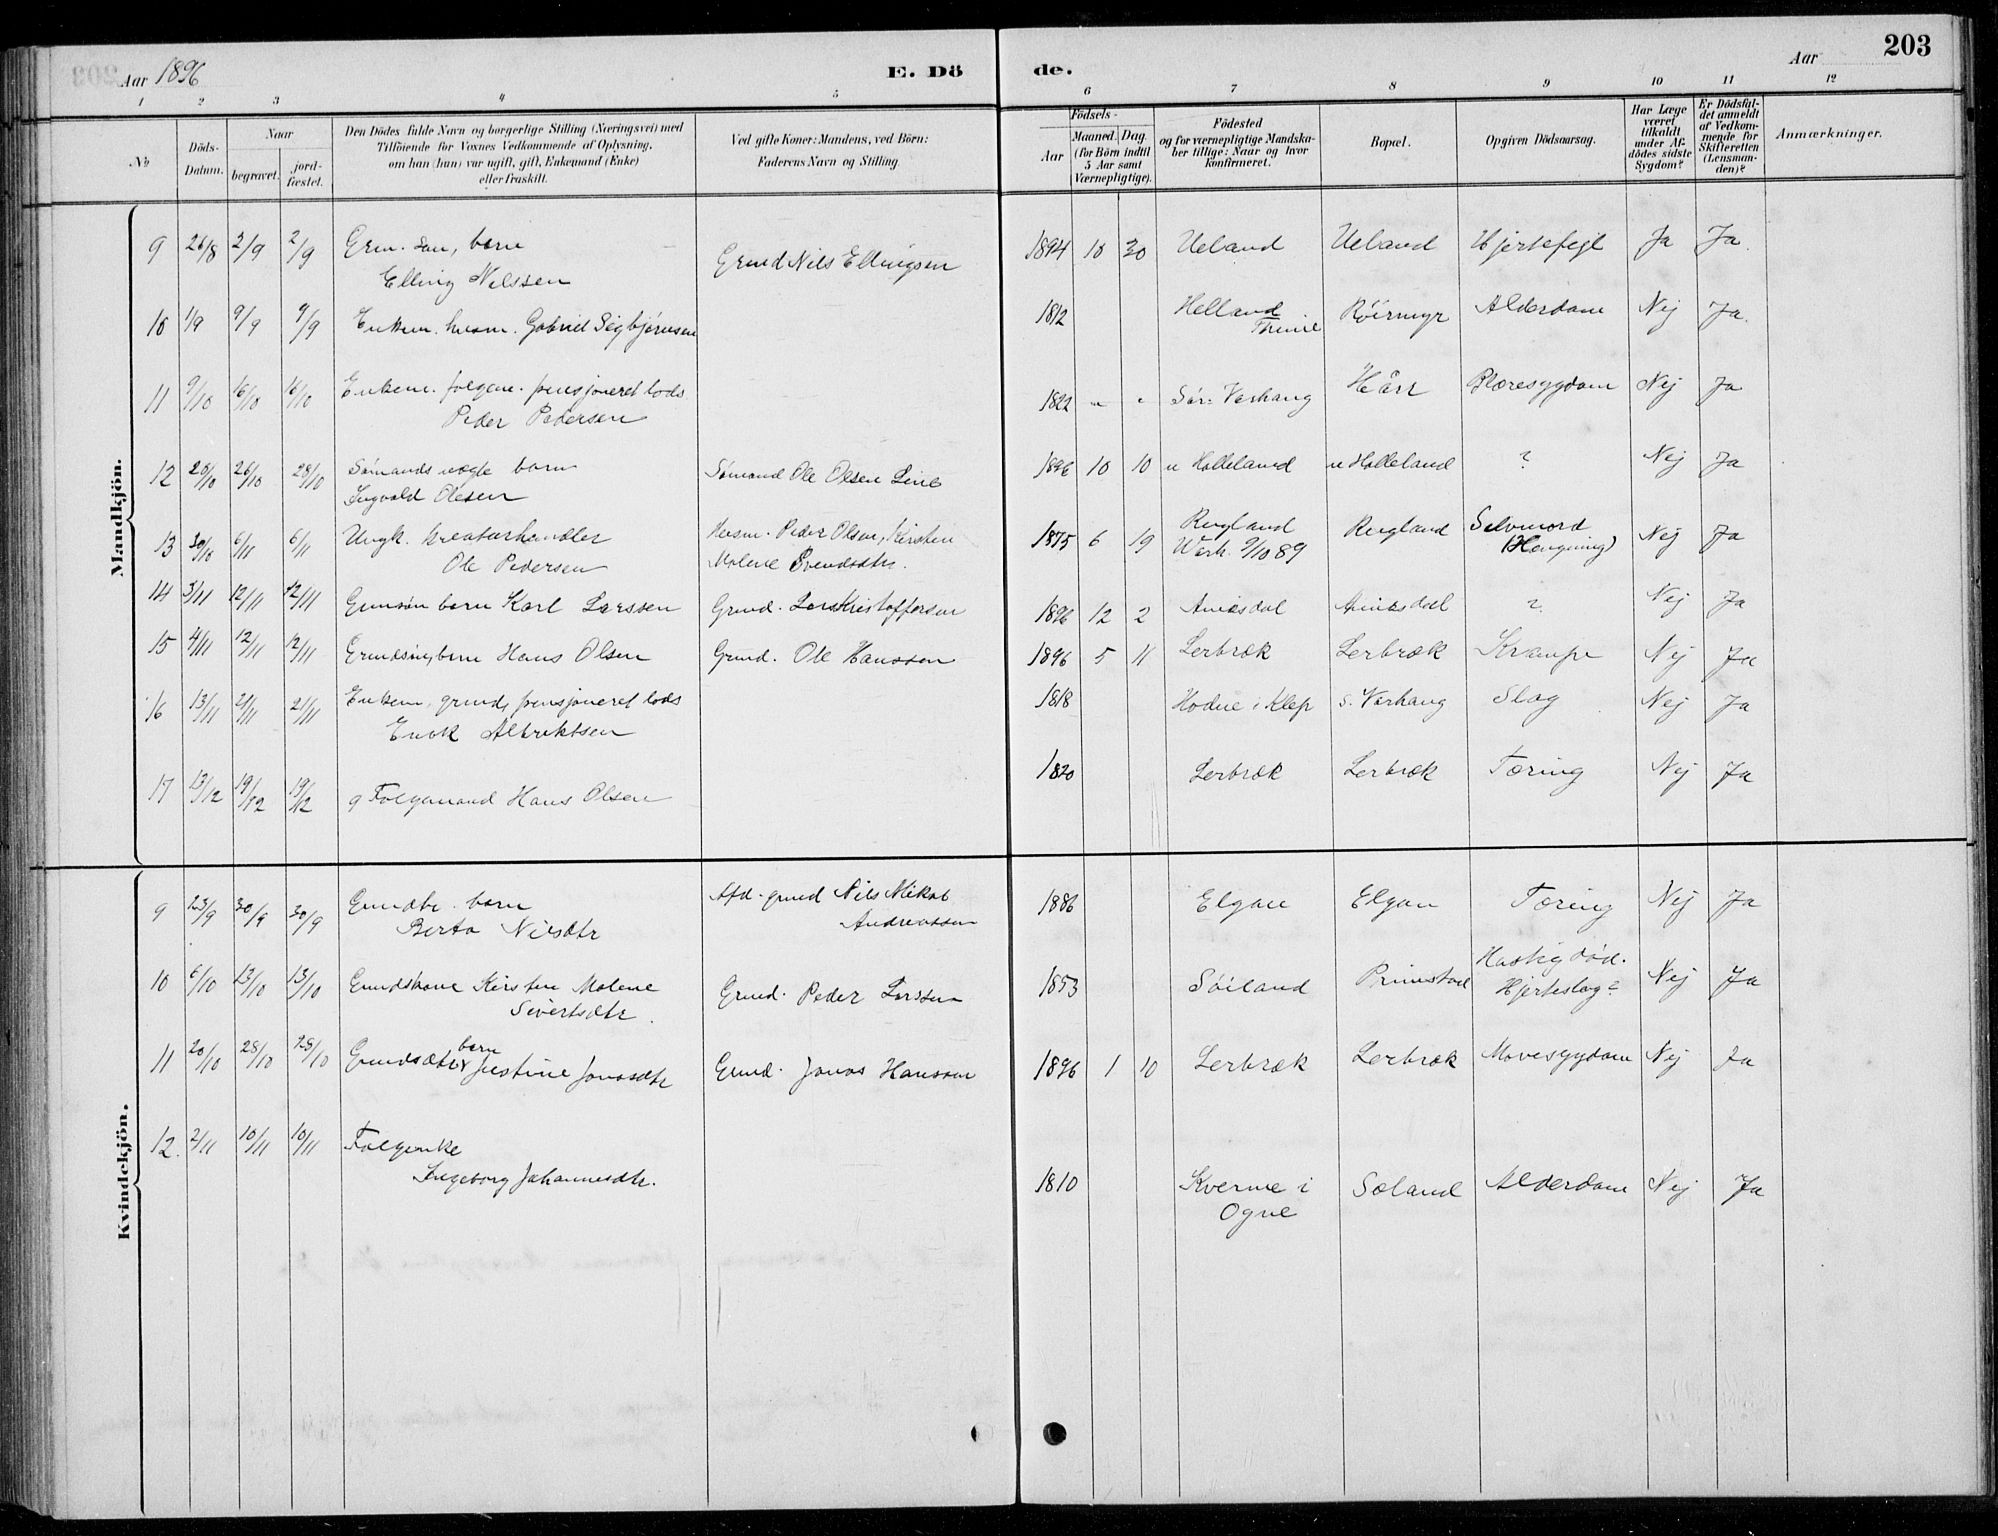 203
Aar 1896
E. Dö
de.
Aar
1 2 3 4 5 6 7 8 9 10 11 12
No
Döds-Datum.
Naar
begravet.
jordfæstet.
Den Dödes fulde Navn og borgerlige Stilling (Næringsvei) med
Tilföiende for Voxnes Vedkommende af Oplysning,
om han (hun) var ugift, gift, Enkemand (Enke)
eller fraskilt.
Ved gifte Koner: Mandens, ved Börn:
Faderens Navn og Stilling.
Födsels-
Aar
Maaned. Dag.
(for Börn indtil
5 Aar samt
Værnepligtige).
Födested
og for værnepligtige Mandska-
ber tillige: Naar og hvor
konfirmeret.
Bopæl.
Opgiven Dödsaarsag.
Har Læge
været
tilkaldt
under Af-
dödes sidste
Sygdom?
Er Dödsfal-
det anmeldt
af Vedkom-
mende for
Skifteretten
(Lensman-
den)?
Anmærkninger.
Mandkjön.
9 26/8 2/9 2/9 Grm. søn, barn
Elling Nilssen Grmd Nils Ellingsen 1894 10 30 Ueland Ueland Hjertefejl Ja Ja.
10 1/9 9/9 9/9 Enkem. husm. Gabriel Sigbjørnsen 1812 Helland
Thime Røirmyr Alderdom Nej Ja.
11 9/10 16/10 16/10 Enkem. folgem. pensjoneret lods
Peder Pedersen 1822 " " Sør: Varhaug Hårr Blæresygdom Nej Ja
12 20/10 26/10 28/10 Sømands uægte barn
Ingvald Olesen Sømand Ole Olsen Line 1896 10 10 n Holleland n Holleland ? Nej Ja
13 30/10 6/11 6/11 Ungk. kreaturhandler
Ole Pedersen Husm. Peder Olsen, Kirsten
Malene Svendsdtr. 1875 6 19 Rugland
Varh. 9/10 89 Rugland Selvmord
(Hængning) Nej Ja
14 3/11 12/11 12/11 Grmsøn barn Karl Larssen Grmd. Lars Kristoffersen 1896 12 2 Aniksdal Aniksdal ? Nej Ja
15 4/11 12/11 12/11 Grmdsøn, barn Hans Olsen Grmd. Ole Hanssen 1896 5 11 Lerbræk Lerbræk Krampe Nej Ja
16 13/11 21/11 21/11 Enkem, grmd, pensjoneret lods
Enok Albriktsen 1818 Hodne i Klep s. Varhaug Slag Nej Ja
17 13/12 19/12 19/12 g Folgemand Hans Olsen 1820 Lerbræk Lerbræk Tæring Nej Ja
Kvindekjön.
9 23/9 30/9 30/9 Grmdtr. barn
Berta Nilsdtr Afd. grmd Nils Mikal
Andreassen 1886 Elgan Elgan Tæring Nej Ja
10 6/10 13/10 13/10 Grmdskone Kirsten Malene
Sivertsdtr. Grmd. Peder Larssen 1853 Söiland Primstad Hastig død.
Hjerteslag? Nej Ja
11 20/10 28/10 28/10 Grmdsdtr barn Justine Jonasdtr Grmd. Jonas Hanssen 1896 1 10 Lerbræk Lerbræk Mavesygdom Nej Ja
12. 2/11 10/11 10/11 Folgenke
Ingeborg Johannesdtr. 1810 Kverme i
Ogne Søland Alderdom Nej Ja